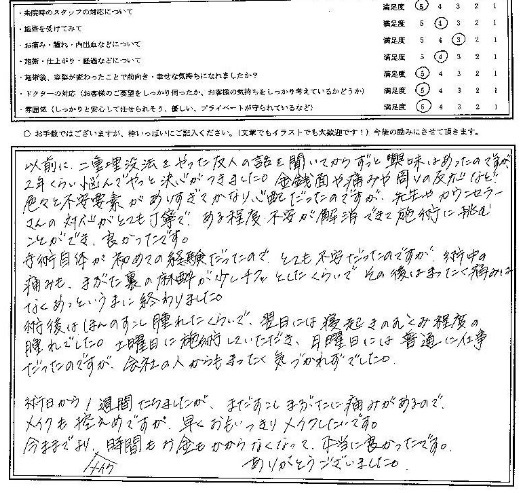 ・来院時のスタッフの対応について 満足度 5 4 3 2 1
・施術を受けてみて 満足度 5 4 3 2 1
・お痛み・腫れ・内出血などについて 満足度 5 4 3 2 1
・施術・仕上がり・経過などについて 満足度 5 4 3 2 1
・施術後、容姿が変わったことで前向き・幸せな気持ちになれましたか? 満足度 5 4 3 2 1
・ドクターの対応(お客様のご要望をしっかり伺ったか、お客様の気持ちをしっかり考えているかどうか) 満足度 5 4 3 2 1
・雰囲気(しっかりと安心して任せられそう、優しい、プライベートが守られているなど) 満足度 5 4 3 2 1
○ お手数ではございますが、枠いっぱいにご記入ください。(文章でもイラストでも大歓迎です!)今後の励みにさせて頂きます。
以前に、二重埋没法をやった友人の話を聞いてからずっと興味はあったのですが、
2年くらい悩んでやっと決心がつきました。金銭面や痛みや周りの反応など
色々と不安要素がありすぎてかなり心配だったのですが、先生やカウンセラー
さんの対応がとても丁寧で、ある程度不安が解消できて施術に挑む
ことができ、良かったです。
手術自体が初めての経験だったので、とても不安だったのですが、術中の
痛みも、まぶた裏の麻酔が少しチクッとしたくらいで、その後はまったく痛みは
なくあっというまに終わりました。
術後はほんのすこし腫れたくらいで、翌日には寝起きのむくみ程度の
腫れでした。土曜日に施術していただき、月曜日には普通に仕事
だったのですが、会社の人からもまったく気づかれずでした。
術日から1週間たちましたが、まだすこしまぶたに痛みがあるので、
メイクも控えめですが、早くおもいっきりメイクしたいです。
今までより、時間もお金もかからなくなって、本当に良かったです。
メイク
ありがとうございました。